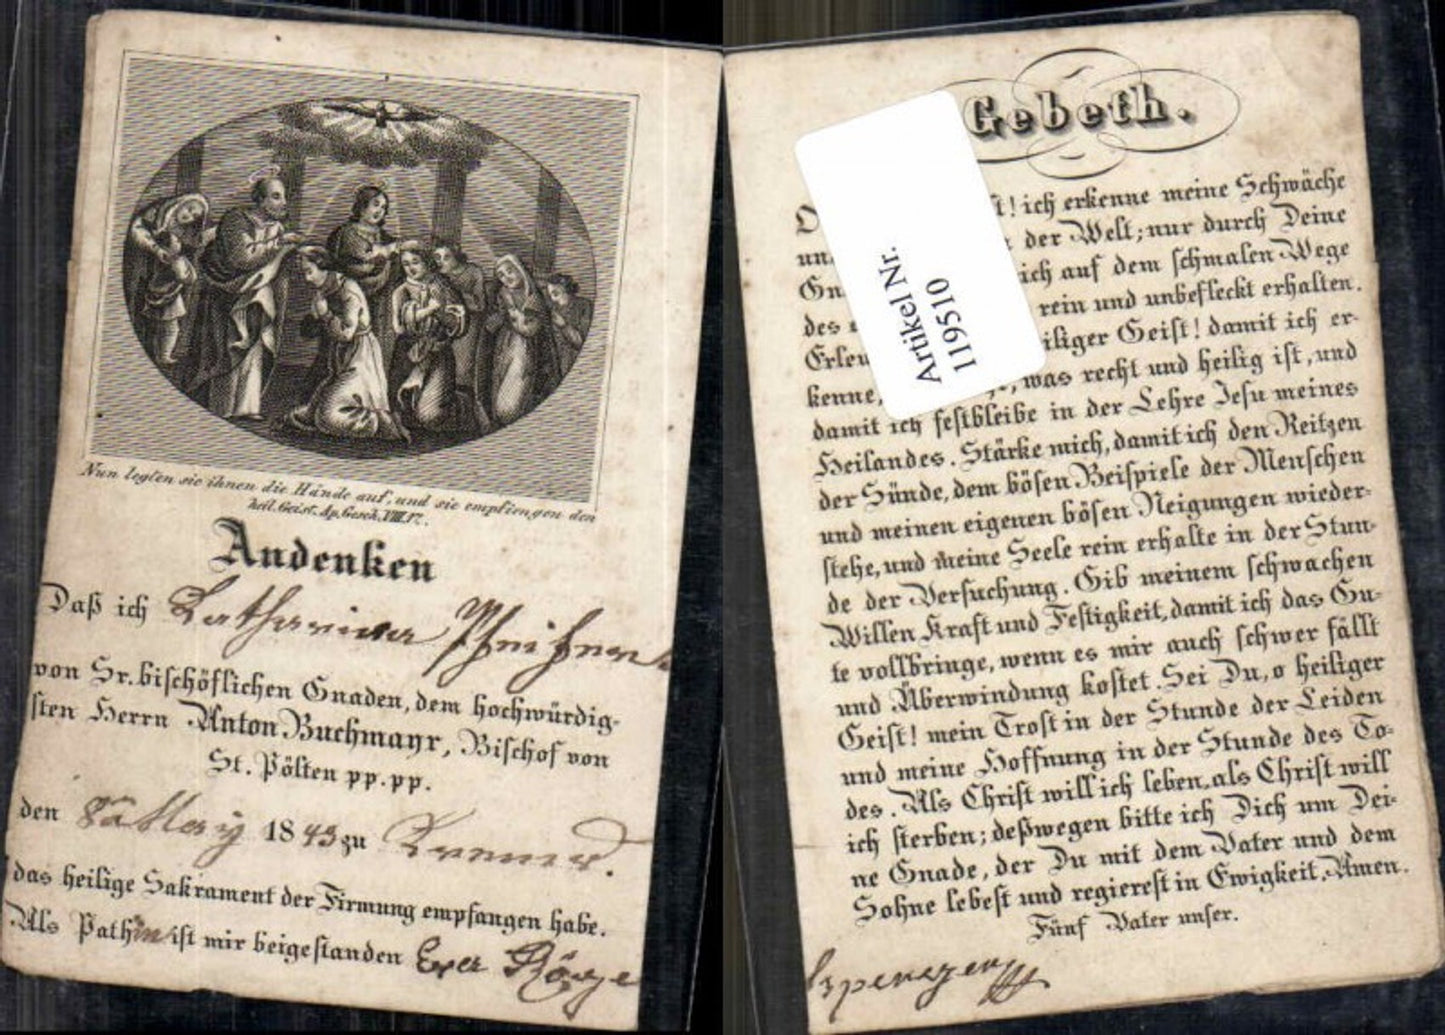 Nun legten sie ihnen die Hände auf, und sie empfiengen den
heil. Geist. Ap. Gesch. VIII. 17.
Andenken
Daß ich Katharina
von Sr. bischöflichen Gnaden, dem hochwürdig-
sten Herrn Anton Buchmayr, Bischof von
St. Pölten pp. pp.
den May 1843 zu Krems.
das heilige Sakrament der Firmung empfangen habe.
Als Pathin ist mir beigestanden Eva
Gebeth.
! ich erkenne meine Schwäche
der Welt; nur durch Deine
ich auf dem schmalen Wege
des rein und unbefleckt erhalten.
iliger Geist! damit ich er-
kenne, was recht und heilig ist, und
damit ich festbleibe in der Lehre Jesu meines
Heilandes. Stärke mich, damit ich den Reitzen
der Sünde, dem bösen Beispiele der Menschen
und meinen eigenen bösen Neigungen wieder-
stehe, und meine Seele rein erhalte in der Stun-
de der Versuchung. Gib meinem schwachen
Willen Kraft und Festigkeit, damit ich das Gu-
te vollbringe, wenn es mir auch schwer fällt
und Überwindung kostet. Sei Du, o heiliger
Geist! mein Trost in der Stunde der Leiden
und meine Hoffnung in der Stunde des To-
des. Als Christ will ich leben, als Christ will
ich sterben; deßwegen bitte ich Dich um Dei-
ne Gnade, der Du mit dem Vater und dem
Sohne lebest und regierest in Ewigkeit. Amen.
Fünf Vater unser.
Artikel Nr.
119510